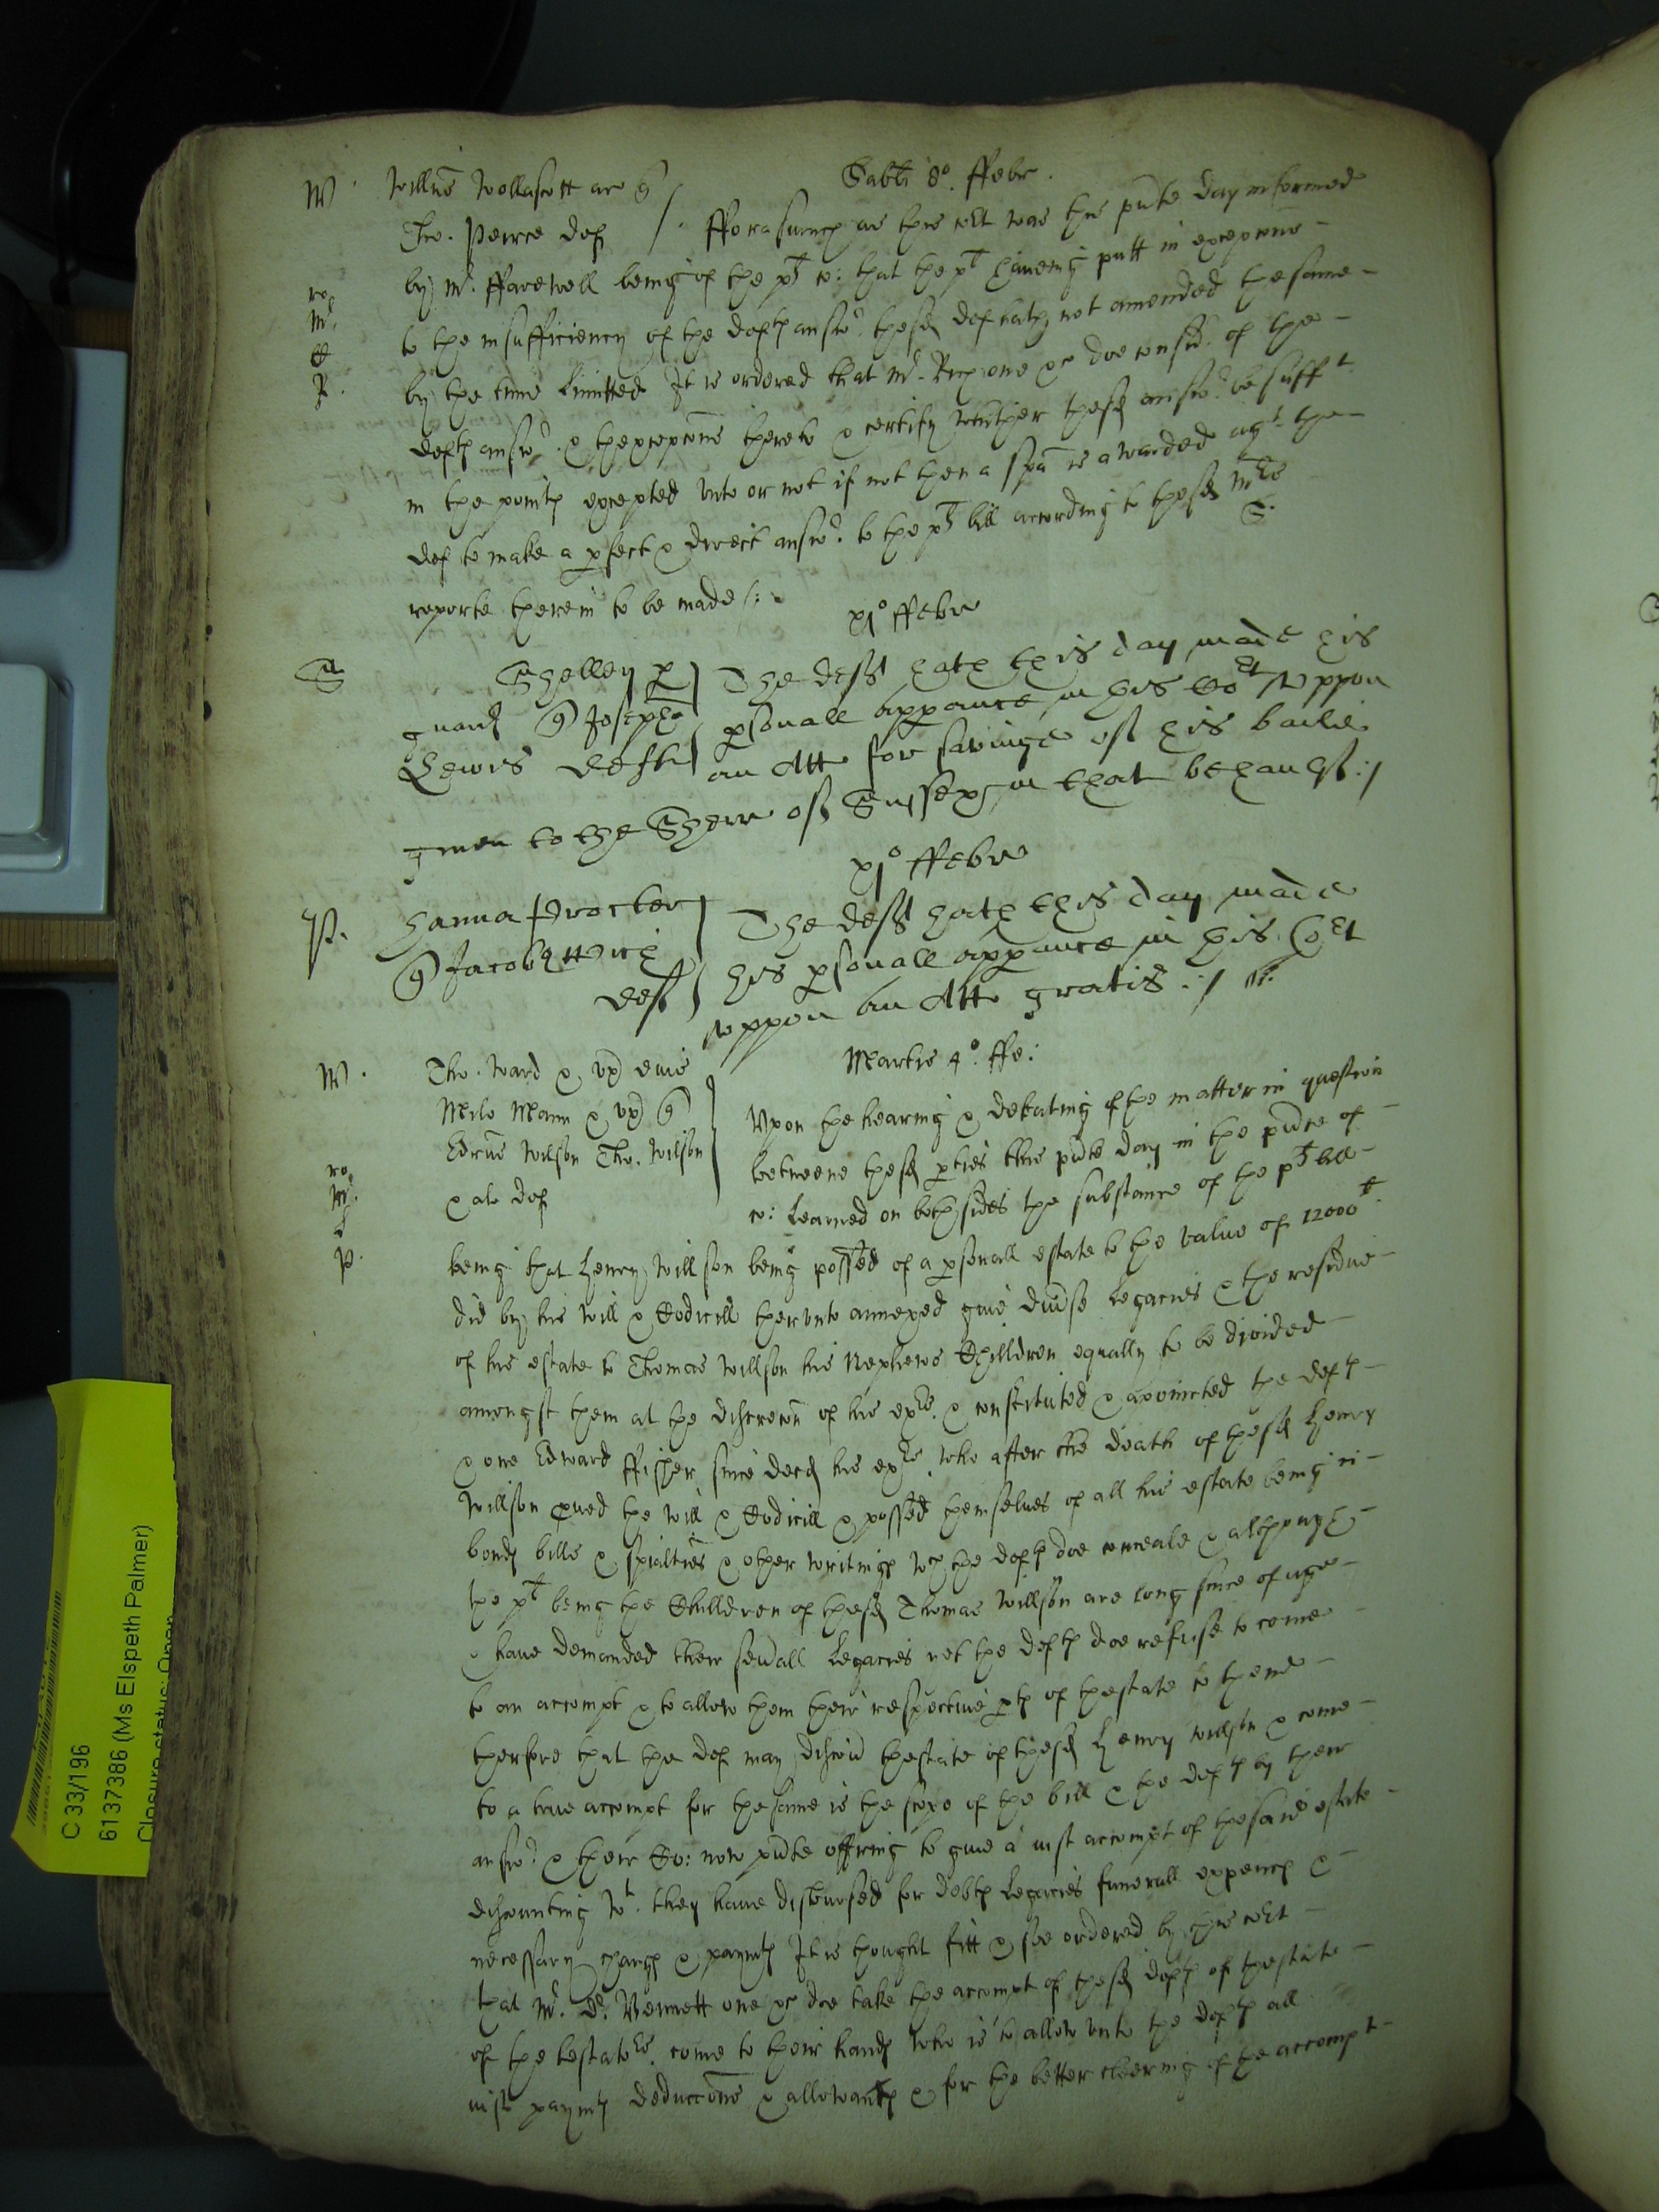 Sabti 8o. ffebr.
W Willms Wollascott ar
Tho. Peirce def / fforasmuch as this cort was this pnte day informed
by Mr. ffarewell being of the plt co: that the plt haveing putt in excepcons
ro to the insufficiency of the defts answr. the sd def hath not amended the same
Mr. by the time limitted It is ordered that Mr. Rich one &c doe consid. of the
R. defts answr. & thexcepcons thereto & certify whither the sd answr. be sufft
in the points excepted unto or not if not then a spa is awarded agt. the
def to make a pfect & direct answr. to the plts bill according to the sd Mrs
reporte therein to be made /:
S.
xjo ffebr
S Shelley p The deft hath this day made his
guard Joseph psonall apparance in this Cort uppon
Lewis deft an Att for savinge of his baile
given to the Sherr of Sussex in that behaulf :/
xjo ffebr
P. Hanna Procter The deft hath this day made
Jacob his psonall apparance in this Cort
deft uppon an Att gratis :/
Martis 4o. ffe:
W. Tho. Ward & ux eius
Milo Mann & ux Upon the hearing & debating of the matter in question
Edrus Wilson Tho. Wilson betweene the sd pties this pnte day in the pnce of
ro & al def co: learned on both sides the substance of the plts bill
Mr.
P. being that Henry Willson being possed of a psonall estate to the value of 12000li
did by his will & Codicill therunto annexed give divse legacies & the residue
of his estate to Thomas Willson his Nephews Chilldren equally to be divided
amongst them at the discrecon of his exrs. & constituted & apointed the defts
& one Edward ffisher since decd his exrs. who after the death of the sd Henry
Willson pved the will & Codicill & possed themselves of all his estate being in
bonds bills & spialties & other writings wch the defts doe conceale & although
the plts being the Chilldren of the sd Thomas Willson are long since of age
& have demanded their sevall legacies yet the defts doe refuse to come
to an accompt & to allow them their respective pts of thestate to thend
therfore that the def may discov thestate of the sd Henry Willson & come
to a true accompt for the same is the scope of the bill & the defts by their
answr. & their Co: now pnte offring to give a iust accompt of the said estate
discounting wt. they have disbursed for debts legacies funerall expences &
necessary charges & paymts It is thought fitt & soe ordered by this cort
that Mr. Dr. Bennett one &c doe take the accompt of the sd defts of thestate
of the testators. come to their hands who is to allow unto the defts all
iust paymts deduccons & allowances & for the better cleering of the accompt
C 33/196
6137386 (Ms Elspeth Palmer)
Closure status: Open